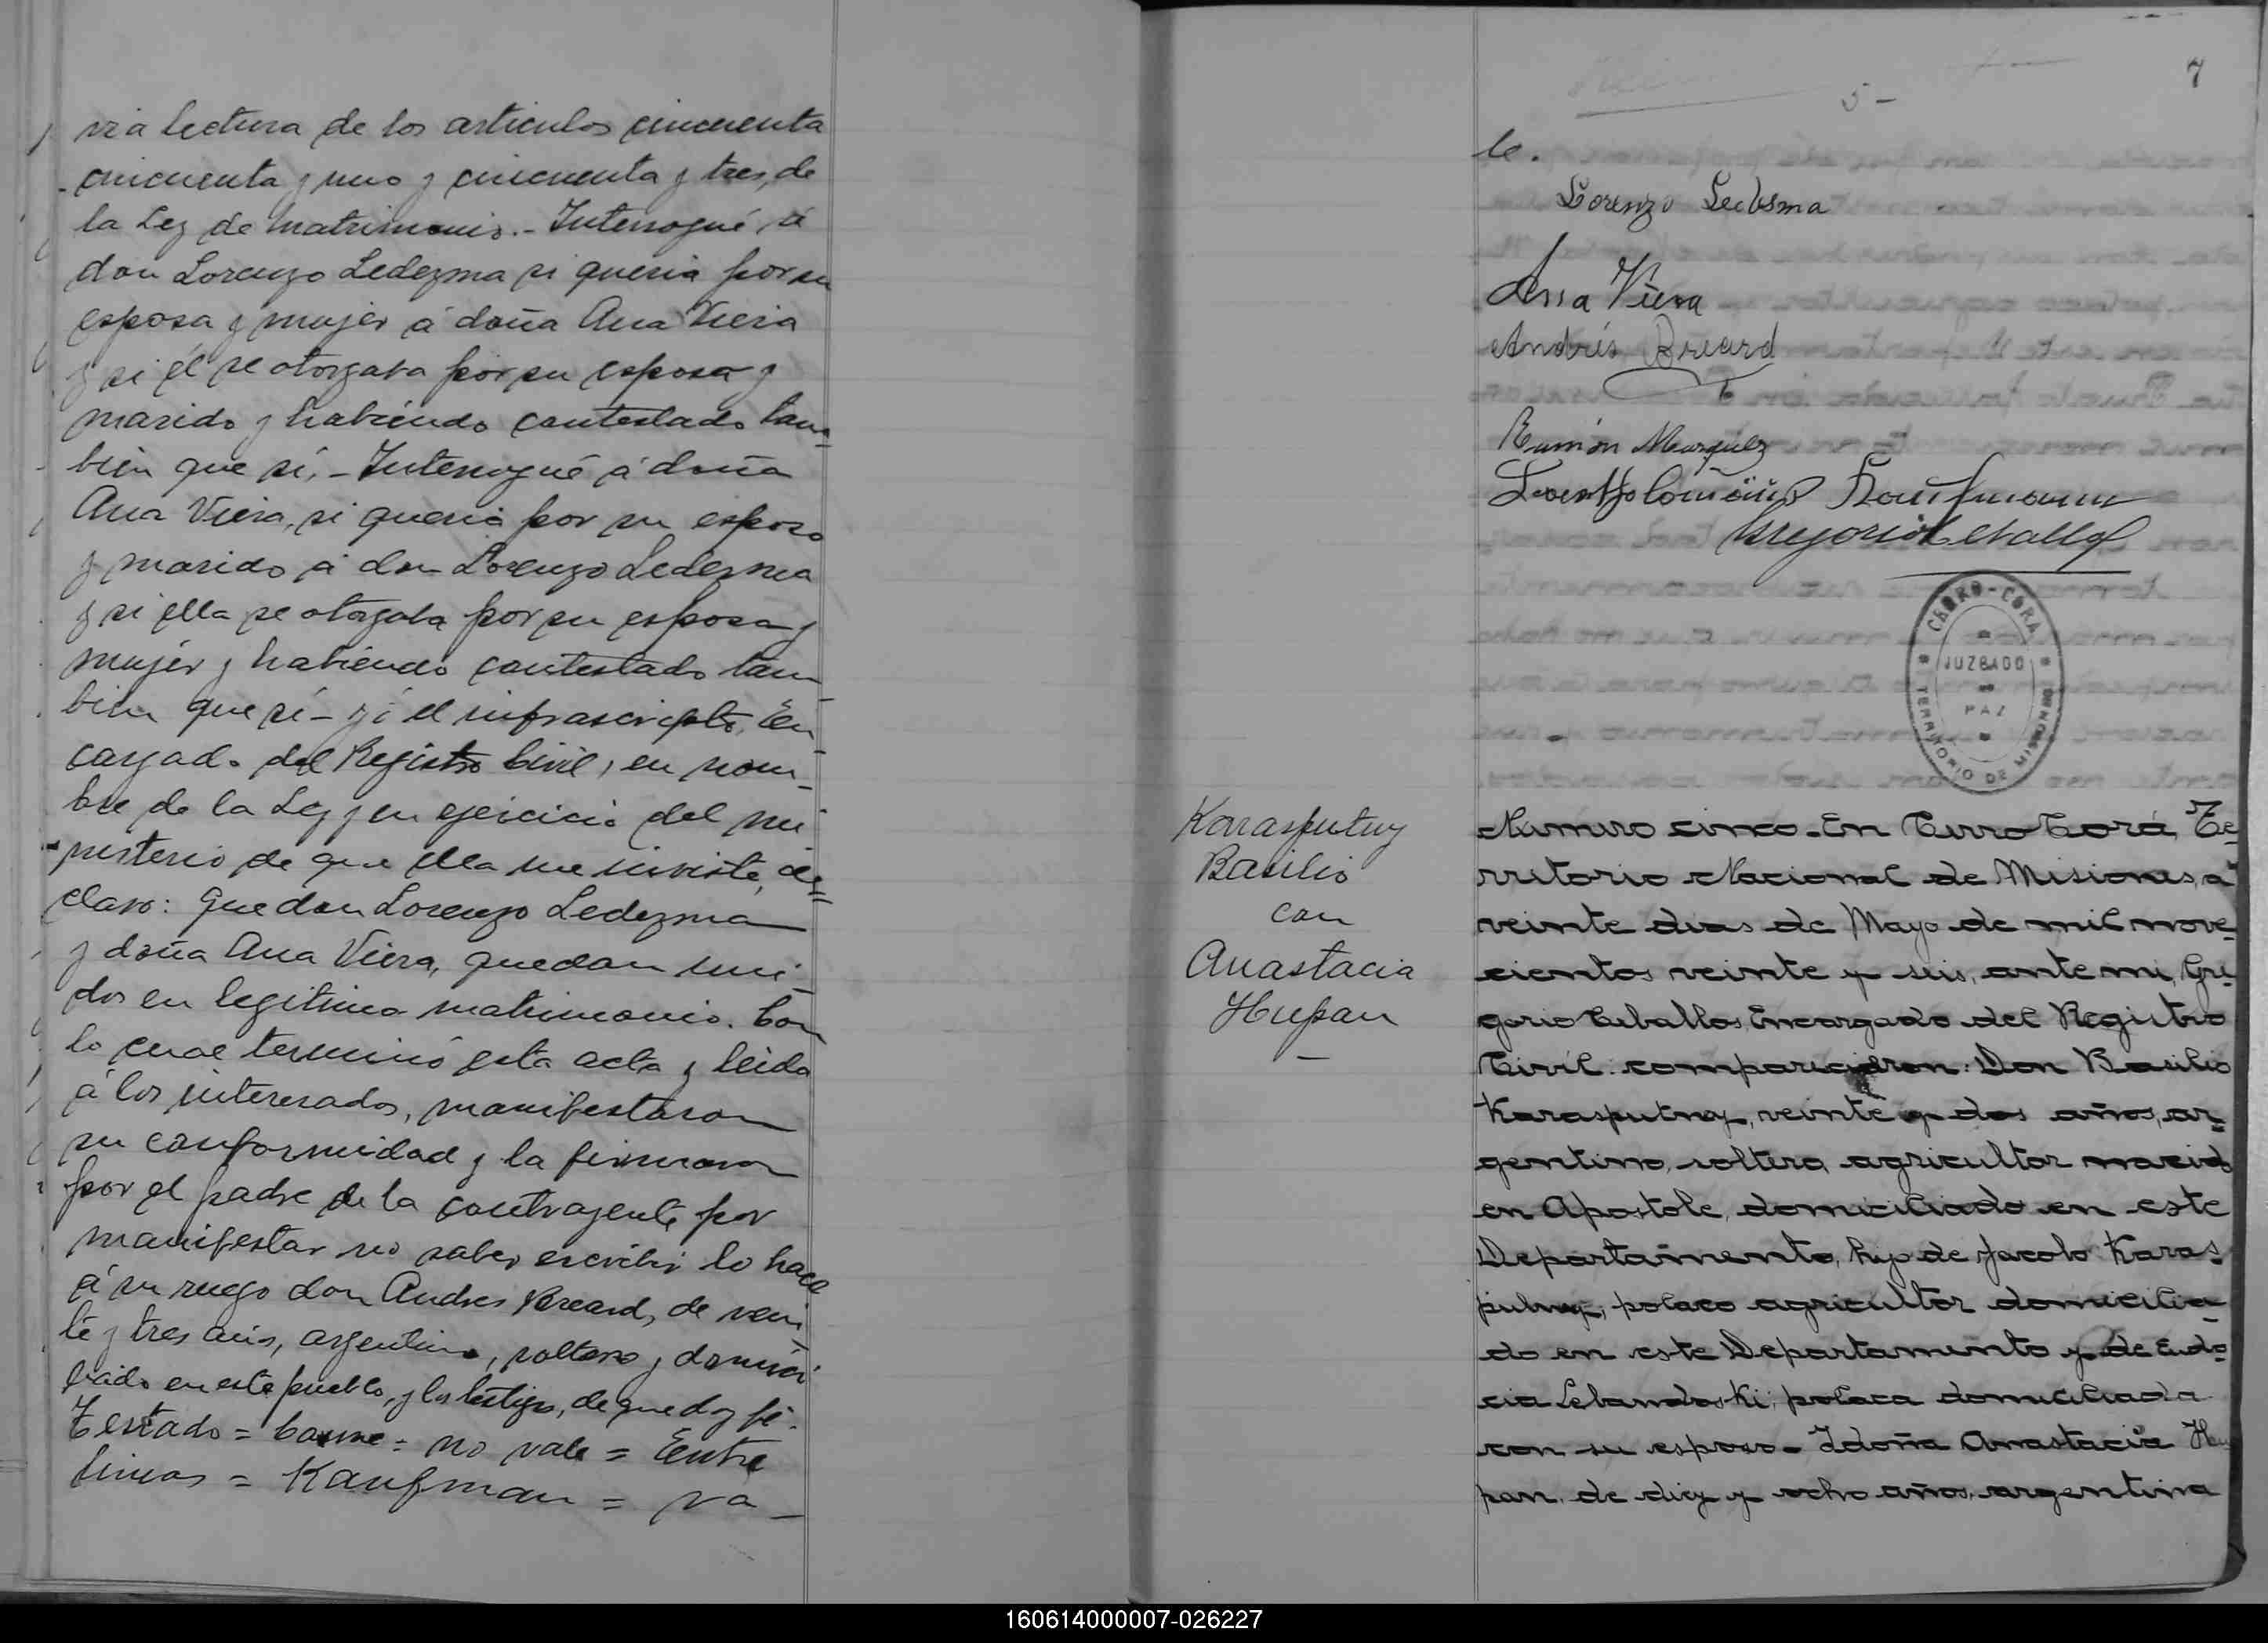 via lectura de los articulos cincuenta
cincuenta y uno y cincuenta y tres, de
la Ley de Matrimonio.- Interrogué á
don Lorenzo Ledezma si queria por su
esposa y mujer á doña Ana Viera
y si él se otorgaba por su esposo y
marido y habiendo contestado tam-
bien que sí.- Interrogué á doña
Ana Viera, si queria por su esposo
y marido á don Lorenzo Ledesma
y si ella se otorgaba por su esposa y
mujer y habiendo contestado tam-
bien que sí- yó el infrascripto, En-
cargado del Registro Civil, en nom-
bre de la Ley y en ejercicio del mi
nisterio de que ella me inviste, de=
claro: que don Lorenzo Ledezma
y doña Ana Viera, quedan uni-
dos en legitimo matrimonio. Con
lo cual terminó esta acta y leida
á los interesados, manifestaron
su conformidad y la firmaron
por el padre de la contrayente por
manifestar no saber escribir lo hace
á su ruego don Andres Breard, de vein-
te y tres años, argentino, soltero y domici
liado en este pueblo, y los testigos, de que doy fé.
Testado = = no vale = Entre
lineas = Kaufman = va-
7
5-
le.
Lorenzo Ledesma
Ana Viera
Andrés Breard
Ramón Marquez
Kaufmann
Gregorio Ceballos
CERRO-CORA
JUZGADO
DE
PAZ
TERRITORIO DE MISIONES
Karasputny
Basilio
con
Anastacia
Hupan
Número cinco-En Cerro Corá, Te-
rritorio Nacional de Misiones, a
veinte dias de Mayo de mil nove-
cientos veinte y seis, ante mi, Gre-
gorio Ceballos, Encargado del Registro
Civil: comparecieron: Don Basilio
Karasputny, veinte y dos años, ar-
gentino, soltero, agricultor nacido
en Apostole, domiciliado en este
Departamento, hijo de Jacobo Karas-
putny, polaco agricultor domicilia-
do en este Departamento y de Eudo-
cia Lebandoski; polaca domiciliada
con su esposo- I doña Anastacia Hu
pan, de diez y ocho años, argentina
160614000007-026227